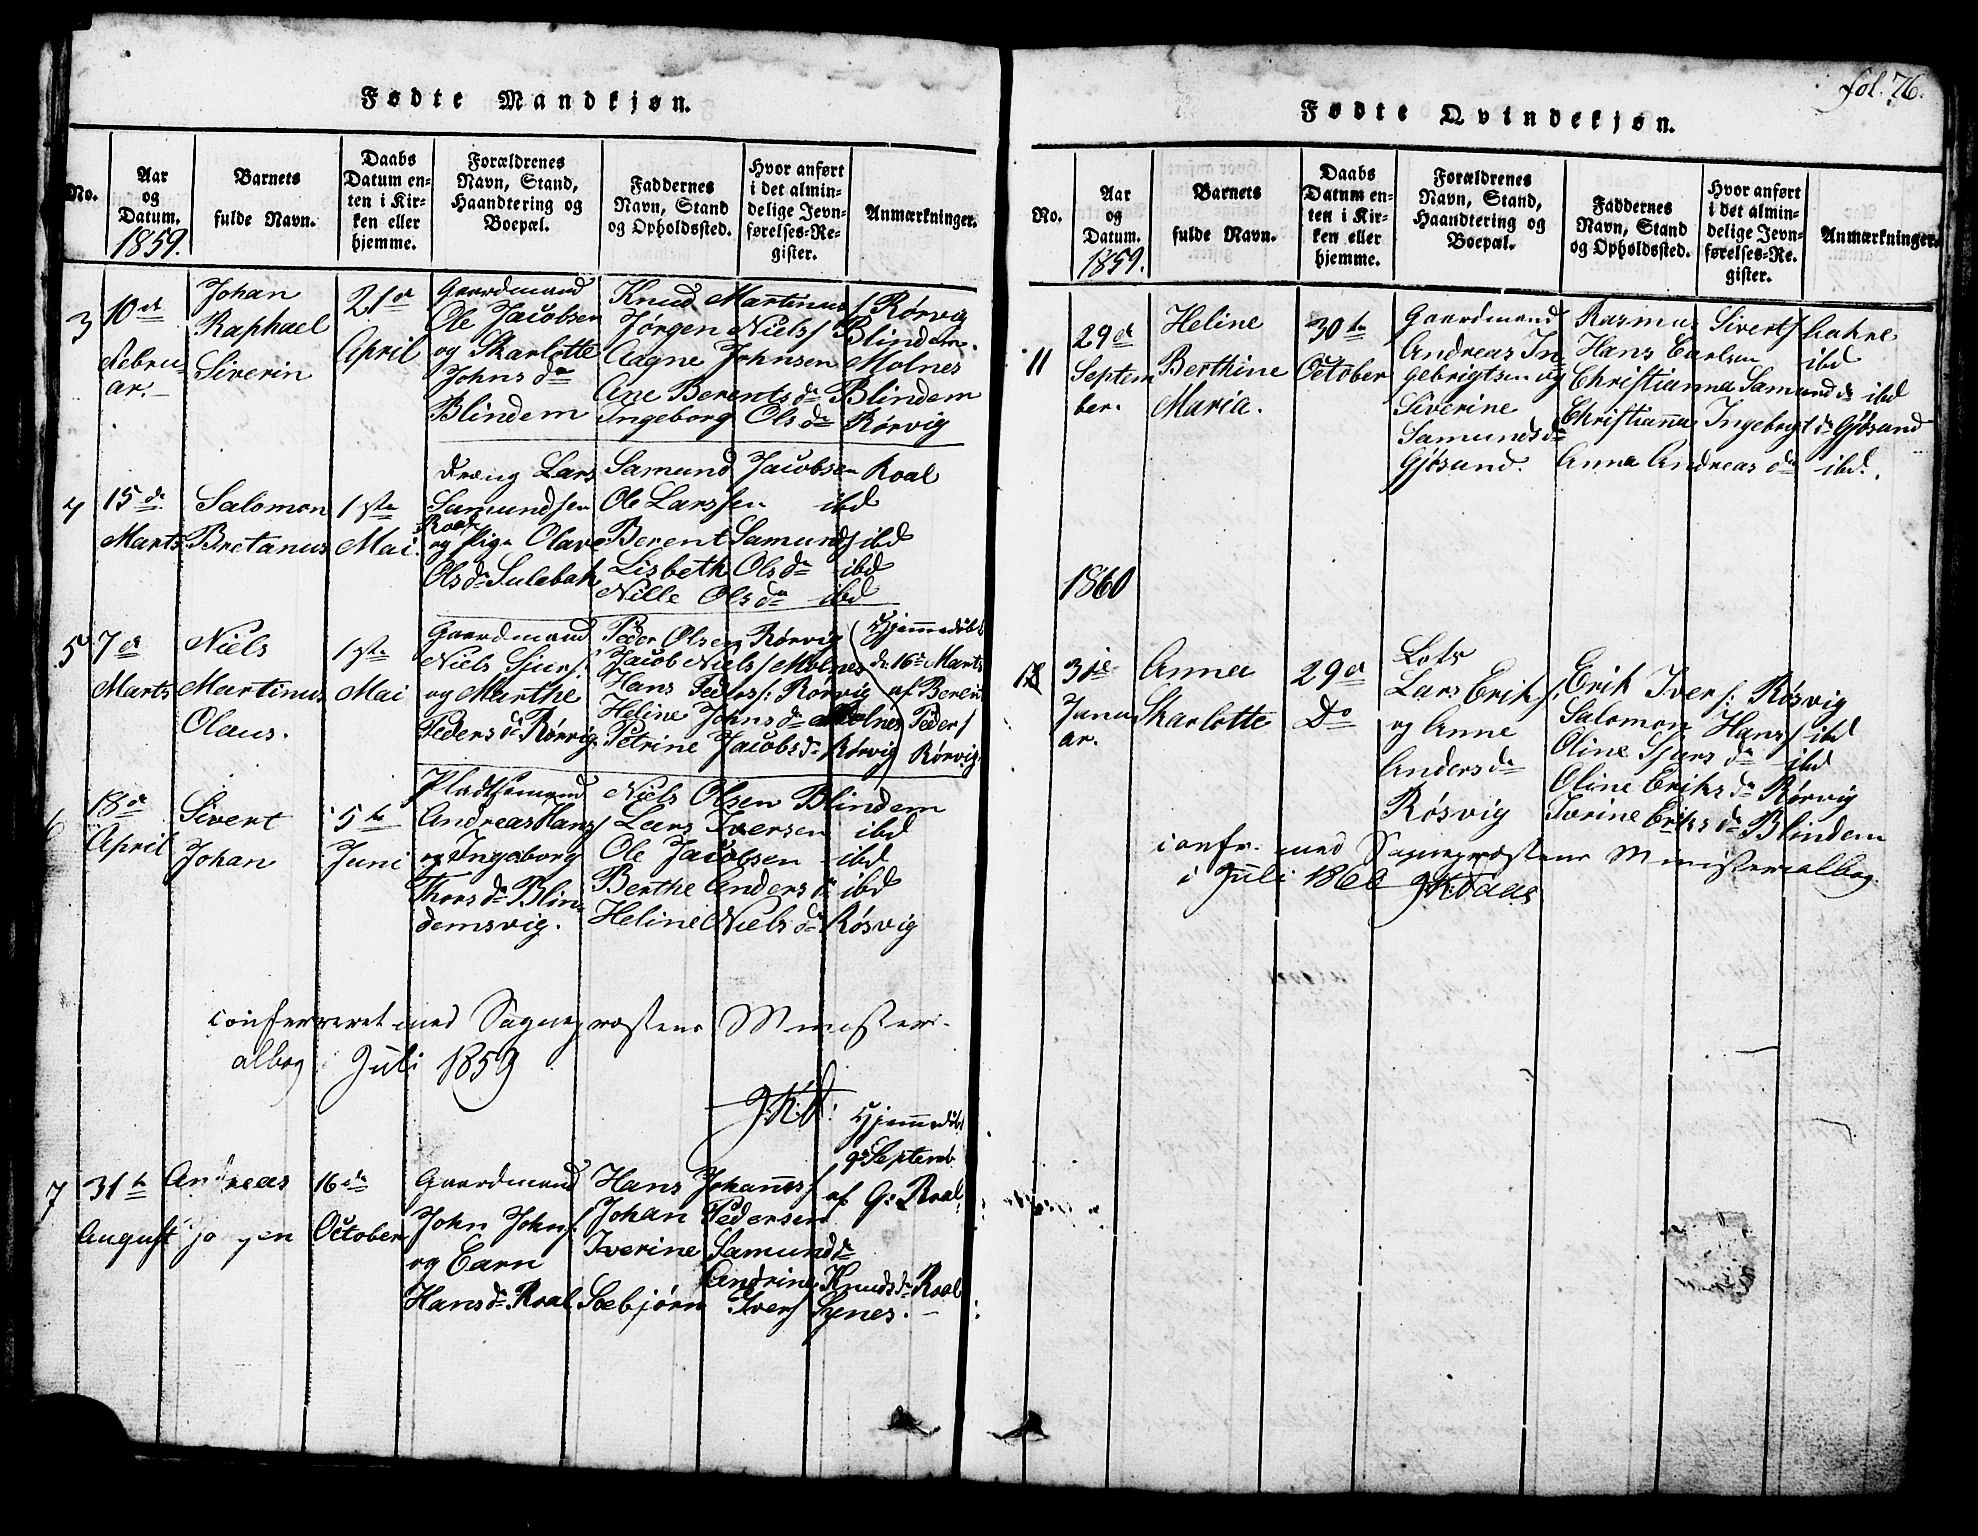 Fødte Mandkjøn.
No.
Aar
og
Datum.
1859.
Barnets
fulde Navn.
Daabs
Datum en-
ten i Kir-
ken eller
hjemme.
Forældrenes
Navn, Stand,
Haandtering og
Boepæl.
Faddernes
Navn, Stand
og Opholdssted.
Hvor anført
i det almin-
delige Jevn-
førelses-Re-
gister.
Anmærkninger.
3
10de
Februar
ar.
Johan
Raphael
Siverin
21de
April
Gaardmand
Ole Jacobsen
og Skarlotte
Johnsdr
Blindem
Knud Martinus/ Rørvig
Jørgen Niels/ Blindem.
Aagne Johnsen Molnes
Ane Berentsdr Blindem
Ingeborg Olsdr Rørvig
4
15de
Marts
Salomon
Bretanus
1ste
Mai.
Dreng Lars
Samundsen
Roald
og Pige Olave
Olsdr Sulebak
Samund Jacobsen Roal
Ole Larssen ibd
Berent Samunds/ ibd
Lisbeth Olsdr ibd
Nille Olsdr ibd
5
7de
Marts
Niels
Martinus
Olaus.
1ste
Mai
Gaardmand
Niels Sjurs/:
og Marthe
Pedersdr Rørvig.
Peder Olsen Rørvig
Jacob Niels/ Molnes
Hans Peders/: Rørvig
Heline Johnsdr Molnes
Petrine Jacobsdr Rørvig
Hjemmedøbt
d. 16de Marts
af Berent
Peder/
Rørvig.
6
18de
April
Sivert
Johan
5te
Juni
Pladsemand
Andreas Hans/
og Ingeborg
Thorsdr Blin-
demsvig.
Niels Olsen Blindem
Lars Iversen ibd
Ole Jacobsen ibd
Berthe Andersdr ibd
Heline Nielsdr Røsvig
conferreret med Sognepræstens Ministeri-
albog i Juli 1859
J.K.D:
7
31te
August
Andreas
Jørgen
16de
October
Gaardmand
John Johns/
og Carn
Hansdr Roal
Hans Johannes/
Johan Pedersen
Iverine Samundsdr
Andrine Knudsdr Roal
Sæbjørn Ivers/ Synes.
Hjemmedøbt
9de Septemb
af G: Roal
fol. 76.
Fødte Qvindekjøn.
No.
Aar
og
Datum.
1859.
Barnets
fulde Navn.
Daabs
Datum en-
ten i Kir-
ken eller
hjemme.
Forældrenes
Navn, Stand,
Haandtering og
Boepæl.
Faddernes
Navn, Stand
og Opholdssted.
Hvor anført
i det almin-
delige Jevn-
førelses-Re-
gister.
Anmærkninger.
11
29de
Septem
ber.
Heline
Berthine
Maria.
30te
October
Gaardmand
Andreas In
gebrigtsen og
Siverine
Samundsdr
Gjøsund.
Rasmus Siverts/
Hans Carlsen ibd
Christianna Samundsdr ibd
Christianna Ingebrigtdr Gjøsund
Anna Andreasdr ibd.
1860
3die
Janu
ar.
Anna
Skarlotte
29de
Do
Lods
Lars Eriks/:
og Anne
Andersdr
Røsvig
Erik Ivers/: Røsvig
Salomon Hans/ ibd
Oline Sjursdr ibd
Oline Eriksdr Rørvig
Ivrine Eriksdr Blindem
confr. med Sognepræstens Ministerialbog
i Juli 1860 J.K. Daae